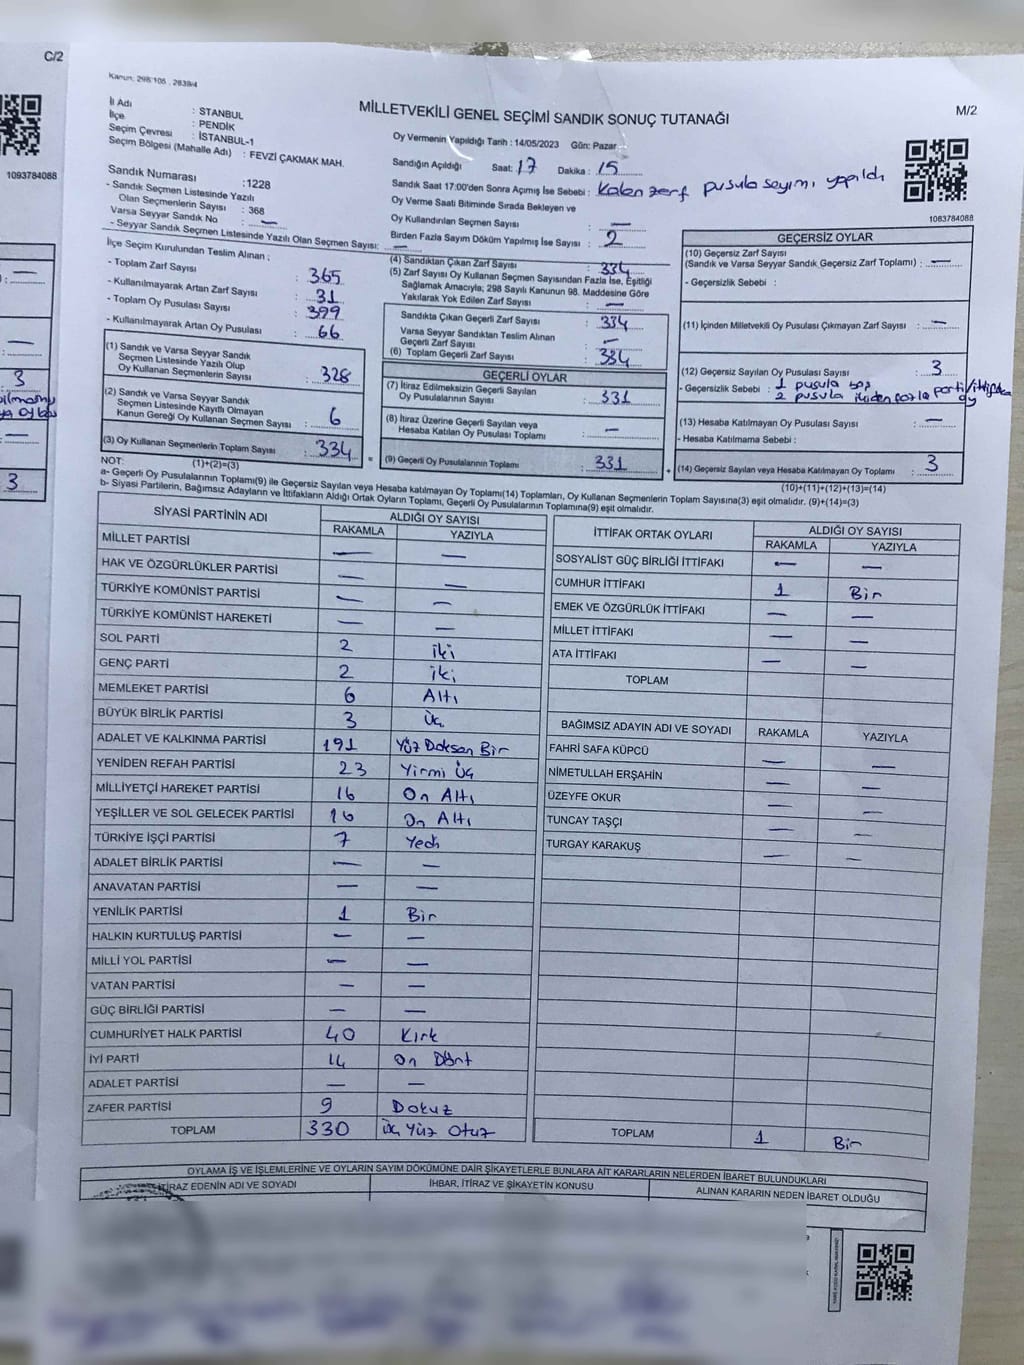 C/2
1093784088
3
3
Kanun: 298/105 , 2839/4
MİLLETVEKİLİ GENEL SEÇİMİ SANDIK SONUÇ TUTANAĞI
M/2
İl Adı : STANBUL
İlçe : PENDİK
Seçim Çevresi : İSTANBUL-1
Seçim Bölgesi (Mahalle Adı) : FEVZİ ÇAKMAK MAH.
Sandık Numarası : 1228
- Sandık Seçmen Listesinde Yazılı
Olan Seçmenlerin Sayısı : 368
Varsa Seyyar Sandık No : —
- Seyyar Sandık Seçmen Listesinde Yazılı Olan Seçmen Sayısı: —
Oy Vermenin Yapıldığı Tarih : 14/05/2023 Gün: Pazar
Sandığın Açıldığı Saat: 17 Dakika : 15
Sandık Saat 17:00'den Sonra Açımış İse Sebebi : Kalan zarf pusula sayımı yapıldı
Oy Verme Saati Bitiminde Sırada Bekleyen ve
Oy Kullandırılan Seçmen Sayısı : —
Birden Fazla Sayım Döküm Yapılmış İse Sayısı : 2
1083784088
İlçe Seçim Kurulundan Teslim Alınan ;
- Toplam Zarf Sayısı : 365
- Kullanılmayarak Artan Zarf Sayısı : 31
- Toplam Oy Pusulası Sayısı : 399
- Kullanılmayarak Artan Oy Pusulası : 66
(1) Sandık ve Varsa Seyyar Sandık
Seçmen Listesinde Yazılı Olup
Oy Kullanan Seçmenlerin Sayısı : 328
(2) Sandık ve Varsa Seyyar Sandık
Seçmen Listesinde Kayıtlı Olmayan
Kanun Gereği Oy Kullanan Seçmen Sayısı : 6
(3) Oy Kullanan Seçmenlerin Toplam Sayısı : 334
(1)+(2)=(3)
(4) Sandıktan Çıkan Zarf Sayısı : 334
(5) Zarf Sayısı Oy Kullanan Seçmen Sayısından Fazla İse, Eşitliği
Sağlamak Amacıyla; 298 Sayılı Kanunun 98. Maddesine Göre
Yakılarak Yok Edilen Zarf Sayısı : —
Sandıkta Çıkan Geçerli Zarf Sayısı : 334
Varsa Seyyar Sandıktan Teslim Alınan
Geçerli Zarf Sayısı : —
(6) Toplam Geçerli Zarf Sayısı : 334
GEÇERLİ OYLAR
(7) İtiraz Edilmeksizin Geçerli Sayılan
Oy Pusulalarının Sayısı : 331
(8) İtiraz Üzerine Geçerli Sayılan veya
Hesaba Katılan Oy Pusulası Toplamı : —
(9) Geçerli Oy Pusulalarının Toplamı : 331
GEÇERSİZ OYLAR
(10) Geçersiz Zarf Sayısı
(Sandık ve Varsa Seyyar Sandık Geçersiz Zarf Toplamı) : —
- Geçersizlik Sebebi :
(11) İçinden Milletvekili Oy Pusulası Çıkmayan Zarf Sayısı : —
(12) Geçersiz Sayılan Oy Pusulası Sayısı : 3
- Geçersizlik Sebebi : 1 pusula boş
2 pusula ikiden fazla parti/ittifaka oy
(13) Hesaba Katılmayan Oy Pusulası Sayısı : —
- Hesaba Katılmama Sebebi :
(14) Geçersiz Sayılan veya Hesaba Katılmayan Oy Toplamı : 3
(10)+(11)+(12)+(13)=(14)
NOT:
a- Geçerli Oy Pusulalarının Toplamı(9) ile Geçersiz Sayılan veya Hesaba katılmayan Oy Toplamı(14) Toplamları, Oy Kullanan Seçmenlerin Toplam Sayısına(3) eşit olmalıdır. (9)+(14)=(3)
b- Siyasi Partilerin, Bağımsız Adayların ve İttifakların Aldığı Ortak Oyların Toplamı, Geçerli Oy Pusulalarının Toplamına(9) eşit olmalıdır.
SİYASİ PARTİNİN ADI ALDIĞI OY SAYISI
RAKAMLA YAZIYLA
MİLLET PARTİSİ — —
HAK VE ÖZGÜRLÜKLER PARTİSİ — —
TÜRKİYE KOMÜNİST PARTİSİ — —
TÜRKİYE KOMÜNİST HAREKETİ — —
SOL PARTİ 2 iki
GENÇ PARTİ 2 iki
MEMLEKET PARTİSİ 6 Altı
BÜYÜK BİRLİK PARTİSİ 3 Üç
ADALET VE KALKINMA PARTİSİ 191 Yüz Doksan Bir
YENİDEN REFAH PARTİSİ 23 Yirmi Üç
MİLLİYETÇİ HAREKET PARTİSİ 16 On Altı
YEŞİLLER VE SOL GELECEK PARTİSİ 16 On Altı
TÜRKİYE İŞÇİ PARTİSİ 7 Yedi
ADALET BİRLİK PARTİSİ — —
ANAVATAN PARTİSİ — —
YENİLİK PARTİSİ 1 Bir
HALKIN KURTULUŞ PARTİSİ — —
MİLLİ YOL PARTİSİ — —
VATAN PARTİSİ — —
GÜÇ BİRLİĞİ PARTİSİ — —
CUMHURİYET HALK PARTİSİ 40 Kırk
İYİ PARTİ 14 On Dört
ADALET PARTİSİ — —
ZAFER PARTİSİ 9 Dokuz
TOPLAM 330 Üç Yüz Otuz
İTTİFAK ORTAK OYLARI ALDIĞI OY SAYISI
RAKAMLA YAZIYLA
SOSYALİST GÜÇ BİRLİĞİ İTTİFAKI — —
CUMHUR İTTİFAKI 1 Bir
EMEK VE ÖZGÜRLÜK İTTİFAKI — —
MİLLET İTTİFAKI — —
ATA İTTİFAKI — —
TOPLAM
BAĞIMSIZ ADAYIN ADI VE SOYADI RAKAMLA YAZIYLA
FAHRİ SAFA KÜPCÜ — —
NİMETULLAH ERŞAHİN — —
ÜZEYFE OKUR — —
TUNCAY TAŞÇI — —
TURGAY KARAKUŞ — —
TOPLAM 1 Bir
OYLAMA İŞ VE İŞLEMLERİNE VE OYLARIN SAYIM DÖKÜMÜNE DAİR ŞİKAYETLERLE BUNLARA AİT KARARLARIN NELERDEN İBARET BULUNDUKLARI
İTİRAZ EDENİN ADI VE SOYADI İHBAR, İTİRAZ VE ŞİKAYETİN KONUSU ALINAN KARARIN NEDEN İBARET OLDUĞU